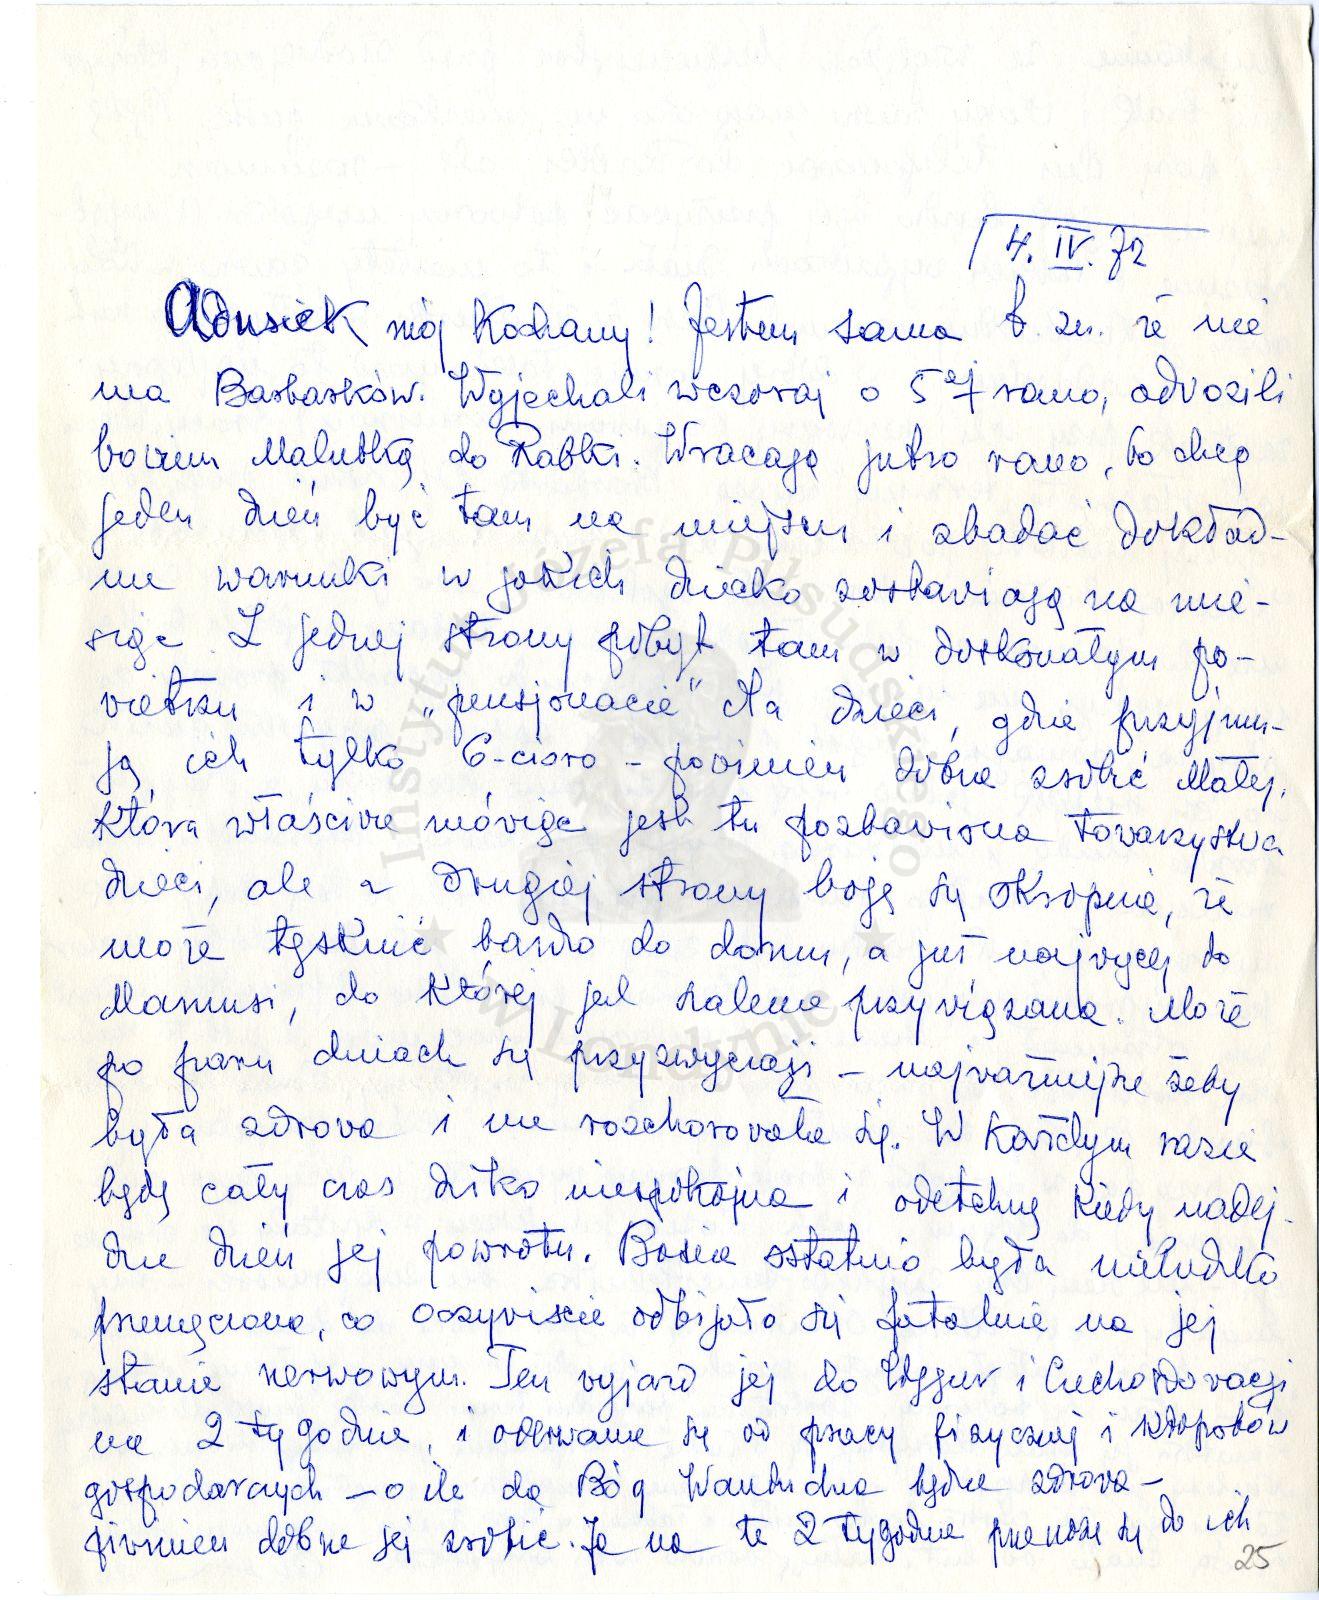 4. IV. 72
Adusiek mój Kochany! Jestem sama t. zn. że nie
ma Barbarków. Wyjechali wczoraj o 5ej rano, odwozili
bowiem Malutką do Rabki. Wracają jutro rano, bo chcą
jeden dzień być tam na miejscu i zbadać dokład-
nie warunki w jakich dziecko zostawiają na mie-
siąc. Z jednej strony pobyt tam w doskonałym po-
wietrzu i w „pensjonacie" dla dzieci, gdzie przyjmu-
ją ich tylko 6-cioro – powinien dobrze zrobić Małej,
która właściwie mówiąc jest tu pozbawiona towarzystwa
dzieci, ale z drugiej strony boję się okropnie, że
może tęsknić bardzo do domu, a już najwięcej do
Mamusi, do której jest szalenie przywiązana. Może
po paru dniach się przyzwyczaji – najważniejsze żeby
była zdrowa i nie rozchorowała się. W każdym razie
będę cały czas dziko niespokojna i odetchnę kiedy nadej-
dzie dzień jej powrotu. Basia ostatnio była nieludzko
przemęczona, co oczywiście odbijało się fatalnie na jej
stanie nerwowym. Ten wyjazd jej do Węgier i Czechosłowacji
na 2 tygodnie, i oderwanie się od pracy fizycznej i kłopotów
gospodarczych – o ile da Bóg Wandudna będzie zdrowa –
powinien dobrze jej zrobić. Ja na te 2 tygodnie przenoszę się do ich
25
Instytut Józefa Piłsudskiego
w Londynie